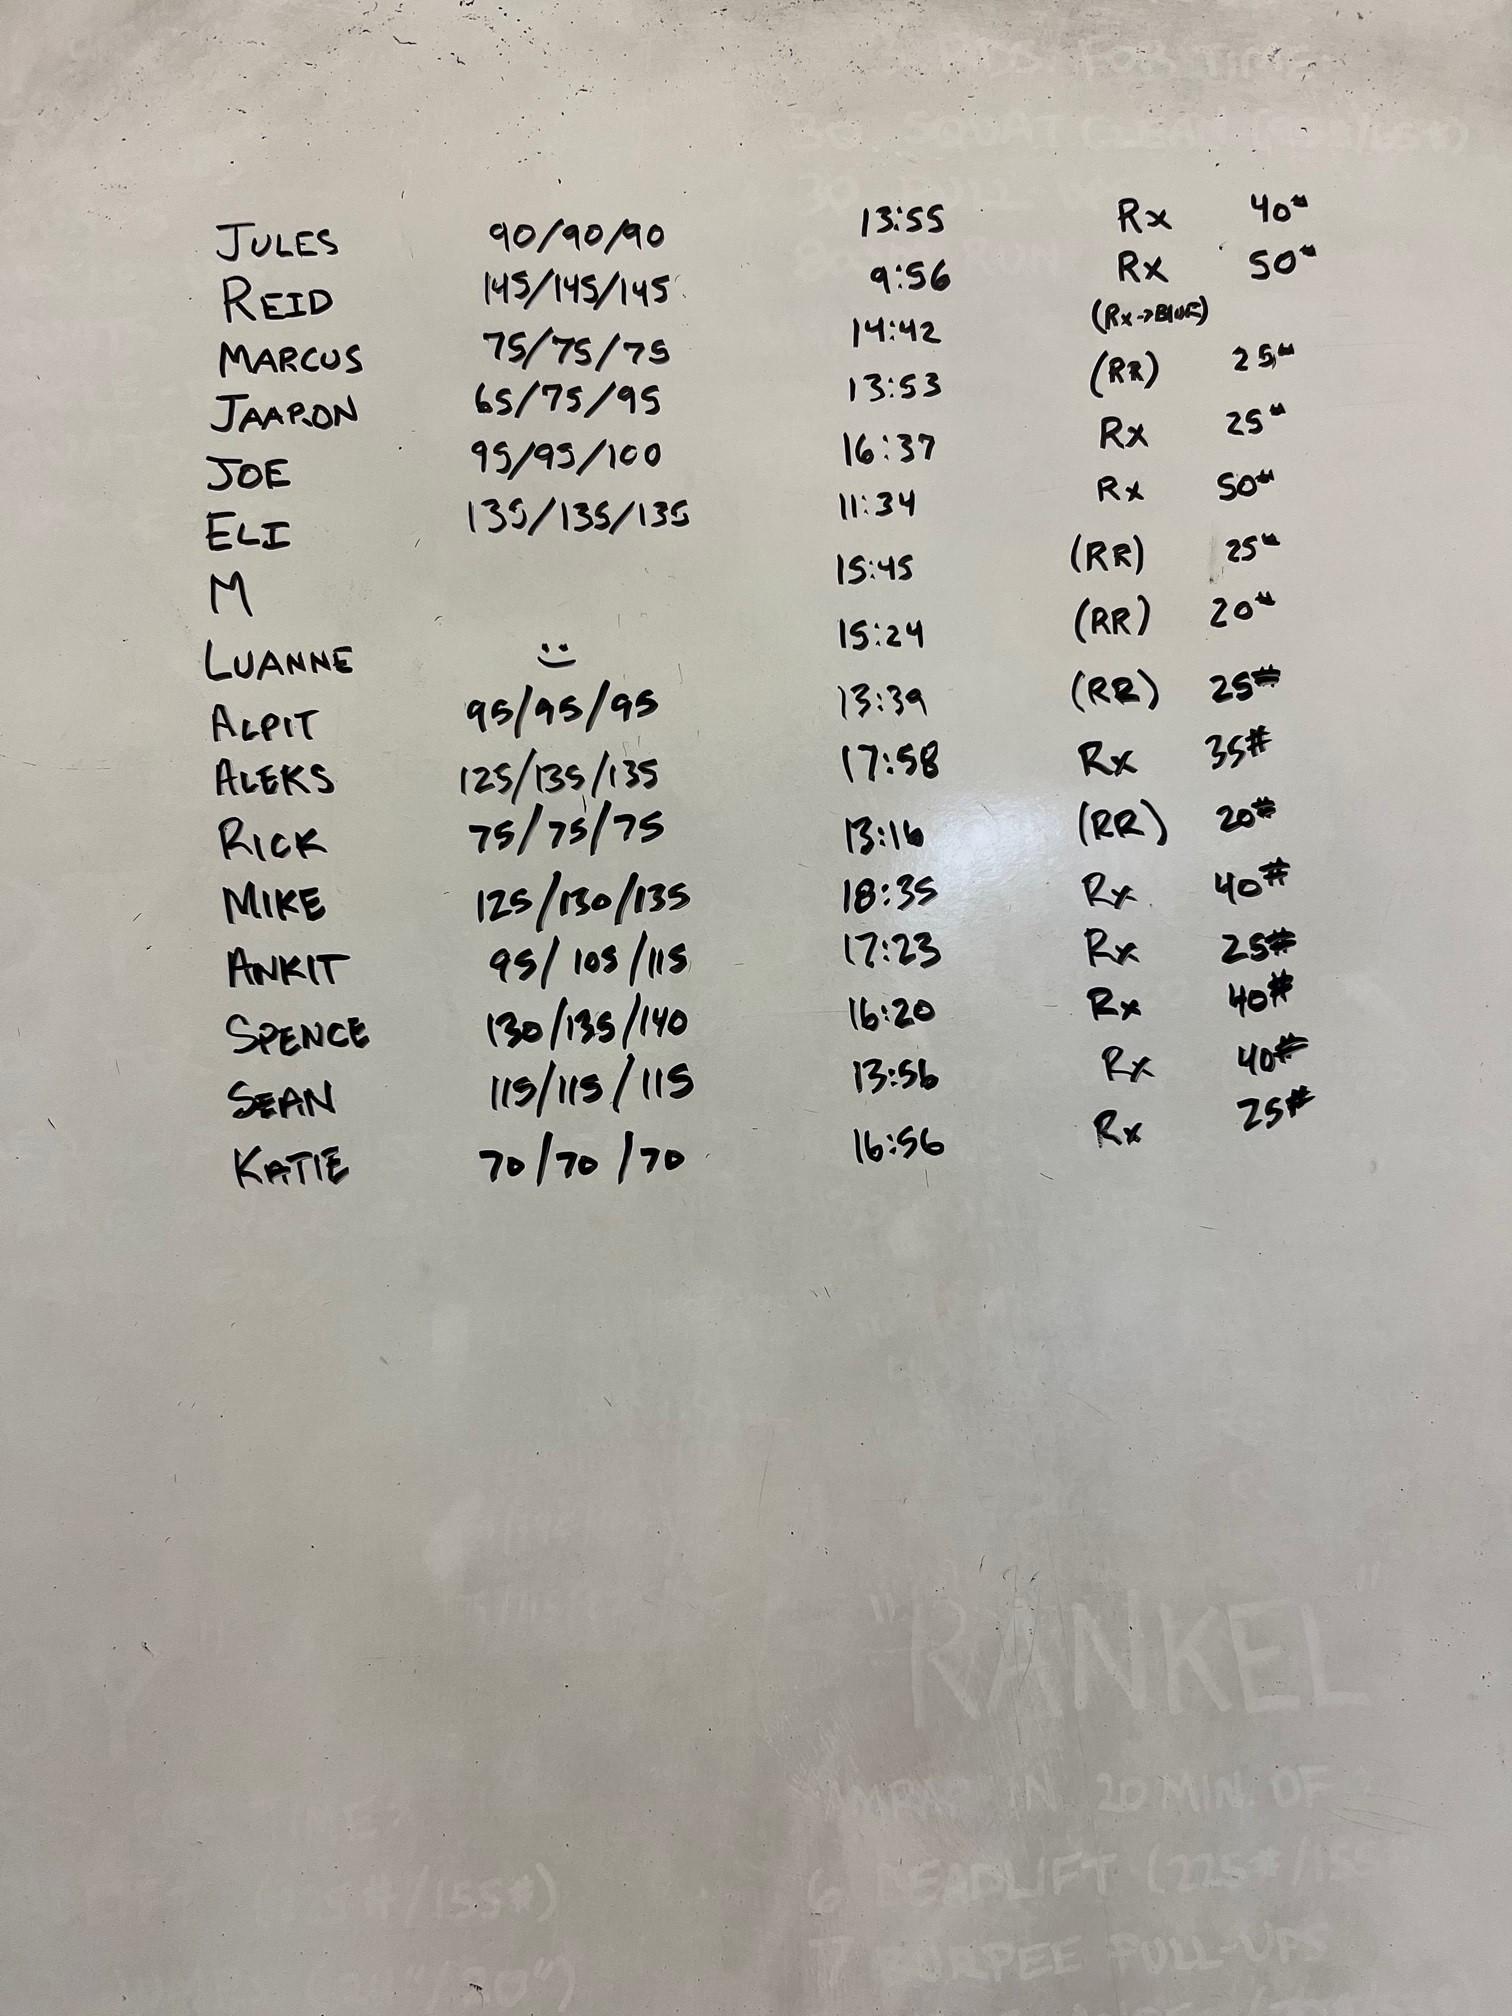 RDS FOR TIME:
30 SQUAT CLEAN
JULES 90/90/90 13:55 Rx 40#
REID 145/145/145 9:56 Rx 50#
MARCUS 75/75/75 14:42 (Rx→BLUE)
JAARON 65/75/95 13:53 (RR) 25#
JOE 95/95/100 16:37 Rx 25#
ELI 135/135/135 11:34 Rx 50#
M 15:45 (RR) 25#
LUANNE 15:24 (RR) 20#
ALPIT 95/95/95 13:39 (RR) 25#
ALEKS 125/135/135 17:58 Rx 35#
RICK 75/75/75 13:16 (RR) 20#
MIKE 125/130/135 18:35 Rx 40#
ANKIT 95/105/115 17:23 Rx 25#
SPENCE 130/135/140 16:20 Rx 40#
SEAN 115/115/115 13:56 Rx 40#
KATIE 70/70/70 16:56 Rx 25#
"RANKEL"
AMRAP IN 20 MIN. OF:
6 DEADLIFT (225#/155#
7 BURPEE PULL-UPS